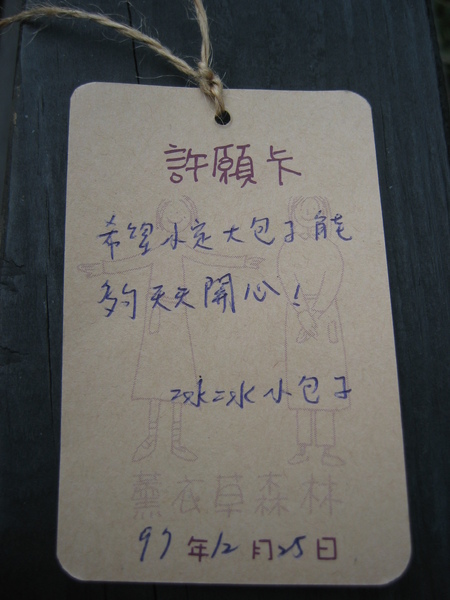 許願卡
希望小定大包子能
夠天天開心!
冰冰小包子
薰衣草森林
97年12月25日